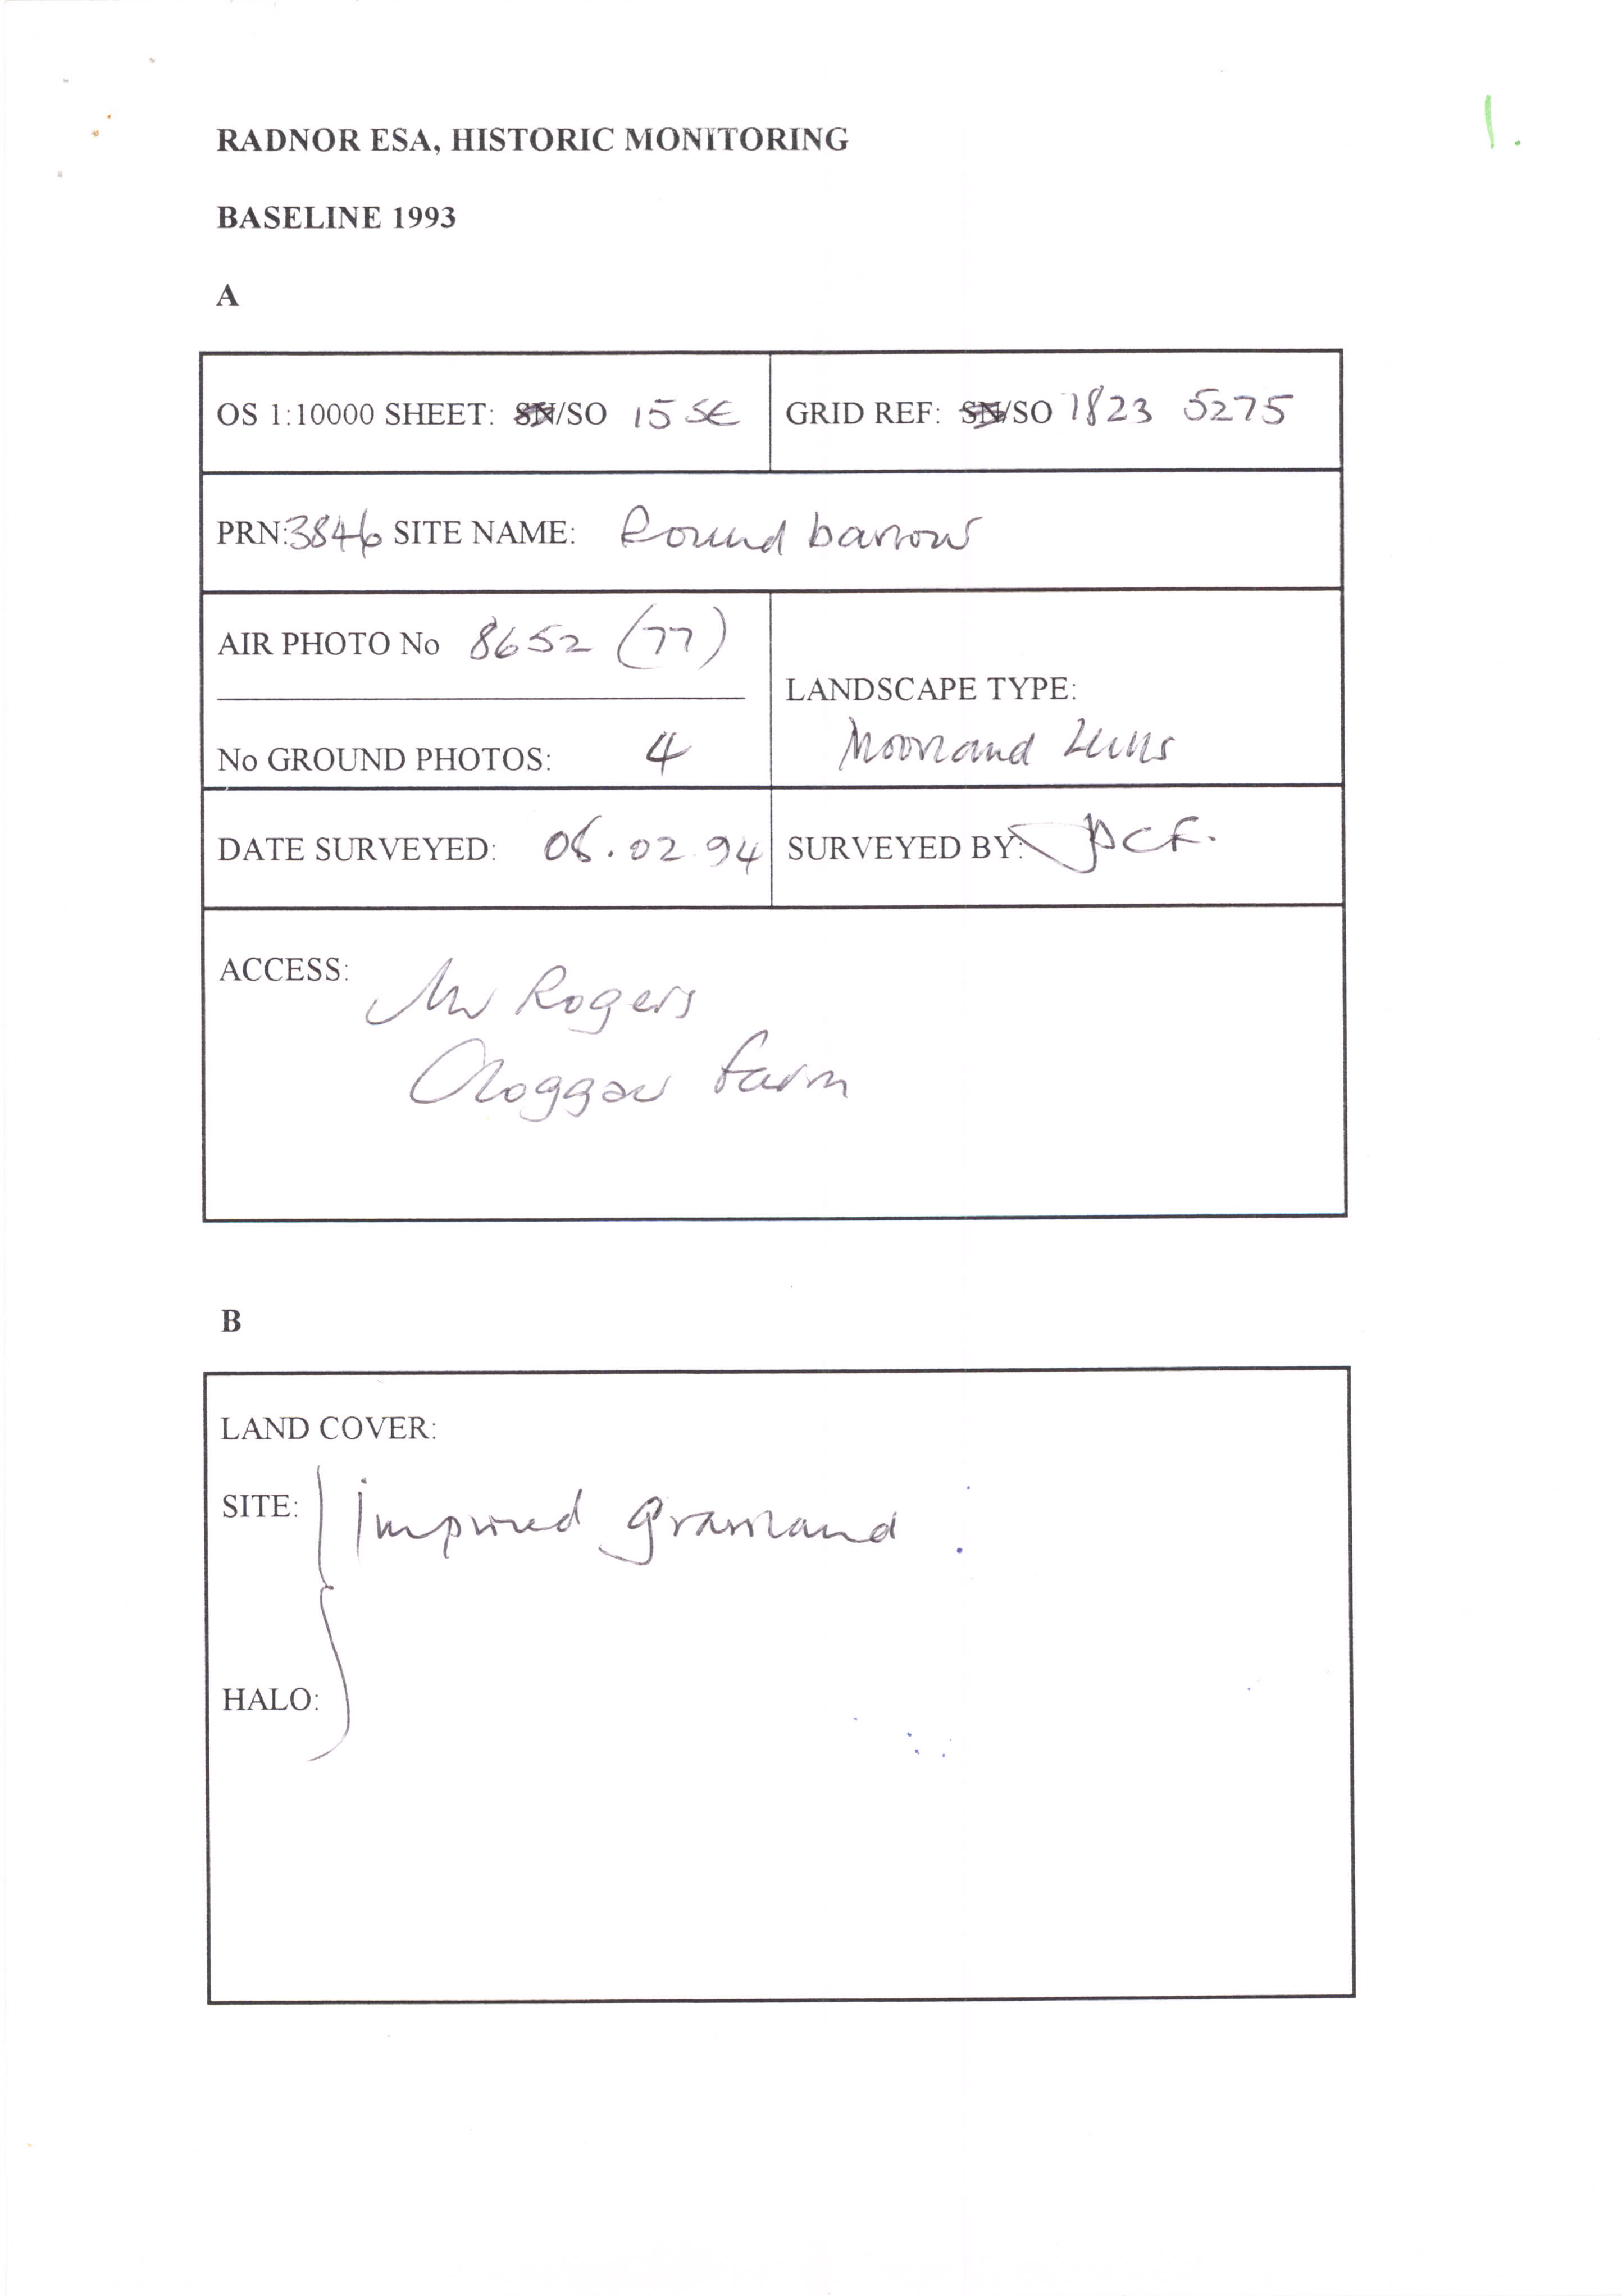 1.
RADNOR ESA, HISTORIC MONITORING
BASELINE 1993
A
OS 1:10000 SHEET: SN/SO 15 SE
GRID REF: SN/SO 1823 5275
PRN: 3846 SITE NAME: Round barrow
AIR PHOTO No 8652 (77)
No GROUND PHOTOS: 4
LANDSCAPE TYPE:
Moorland Hills
DATE SURVEYED: .02.94
SURVEYED BY:
ACCESS: Mr Rogers
Farm
B
LAND COVER:
SITE: Improved grassland
HALO: